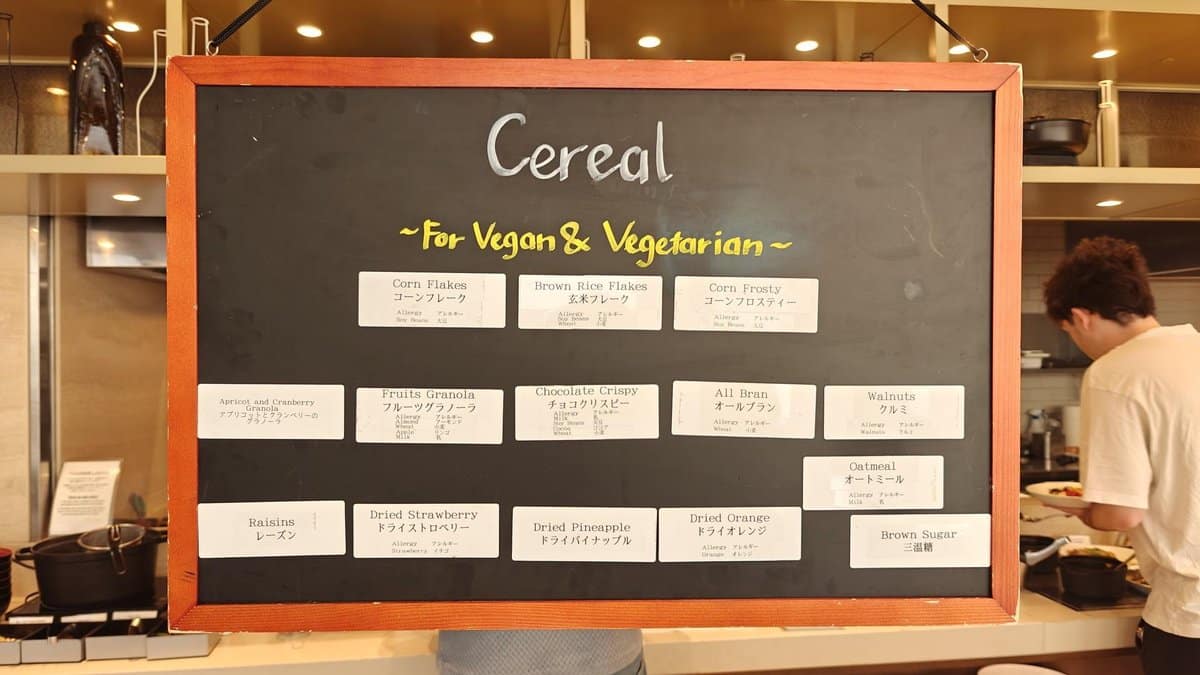 Cereal
~For Vegan & Vegetarian~
Corn Flakes
コーンフレーク
Allergy アレルギー
Soy Beans 大豆
Brown Rice Flakes
玄米フレーク
Allergy アレルギー
Soy Beans 大豆
Wheat 小麦
Corn Frosty
コーンフロスティー
Allergy アレルギー
Soy Beans 大豆
Apricot and Cranberry
Granola
アプリコットとクランベリーの
グラノーラ
Fruits Granola
フルーツグラノーラ
Allergy アレルギー
Almond アーモンド
Wheat 小麦
Apple リンゴ
Milk 乳
Chocolate Crispy
チョコクリスピー
Allergy アレルギー
Milk 乳
Soy Beans 大豆
Cocoa ココア
Wheat 小麦
All Bran
オールブラン
Allergy アレルギー
Wheat 小麦
Walnuts
クルミ
Allergy アレルギー
Walnuts クルミ
Oatmeal
オートミール
Allergy アレルギー
Milk 乳
Raisins
レーズン
Dried Strawberry
ドライストロベリー
Allergy アレルギー
Strawberry イチゴ
Dried Pineapple
ドライパイナップル
Dried Orange
ドライオレンジ
Allergy アレルギー
Orange オレンジ
Brown Sugar
三温糖